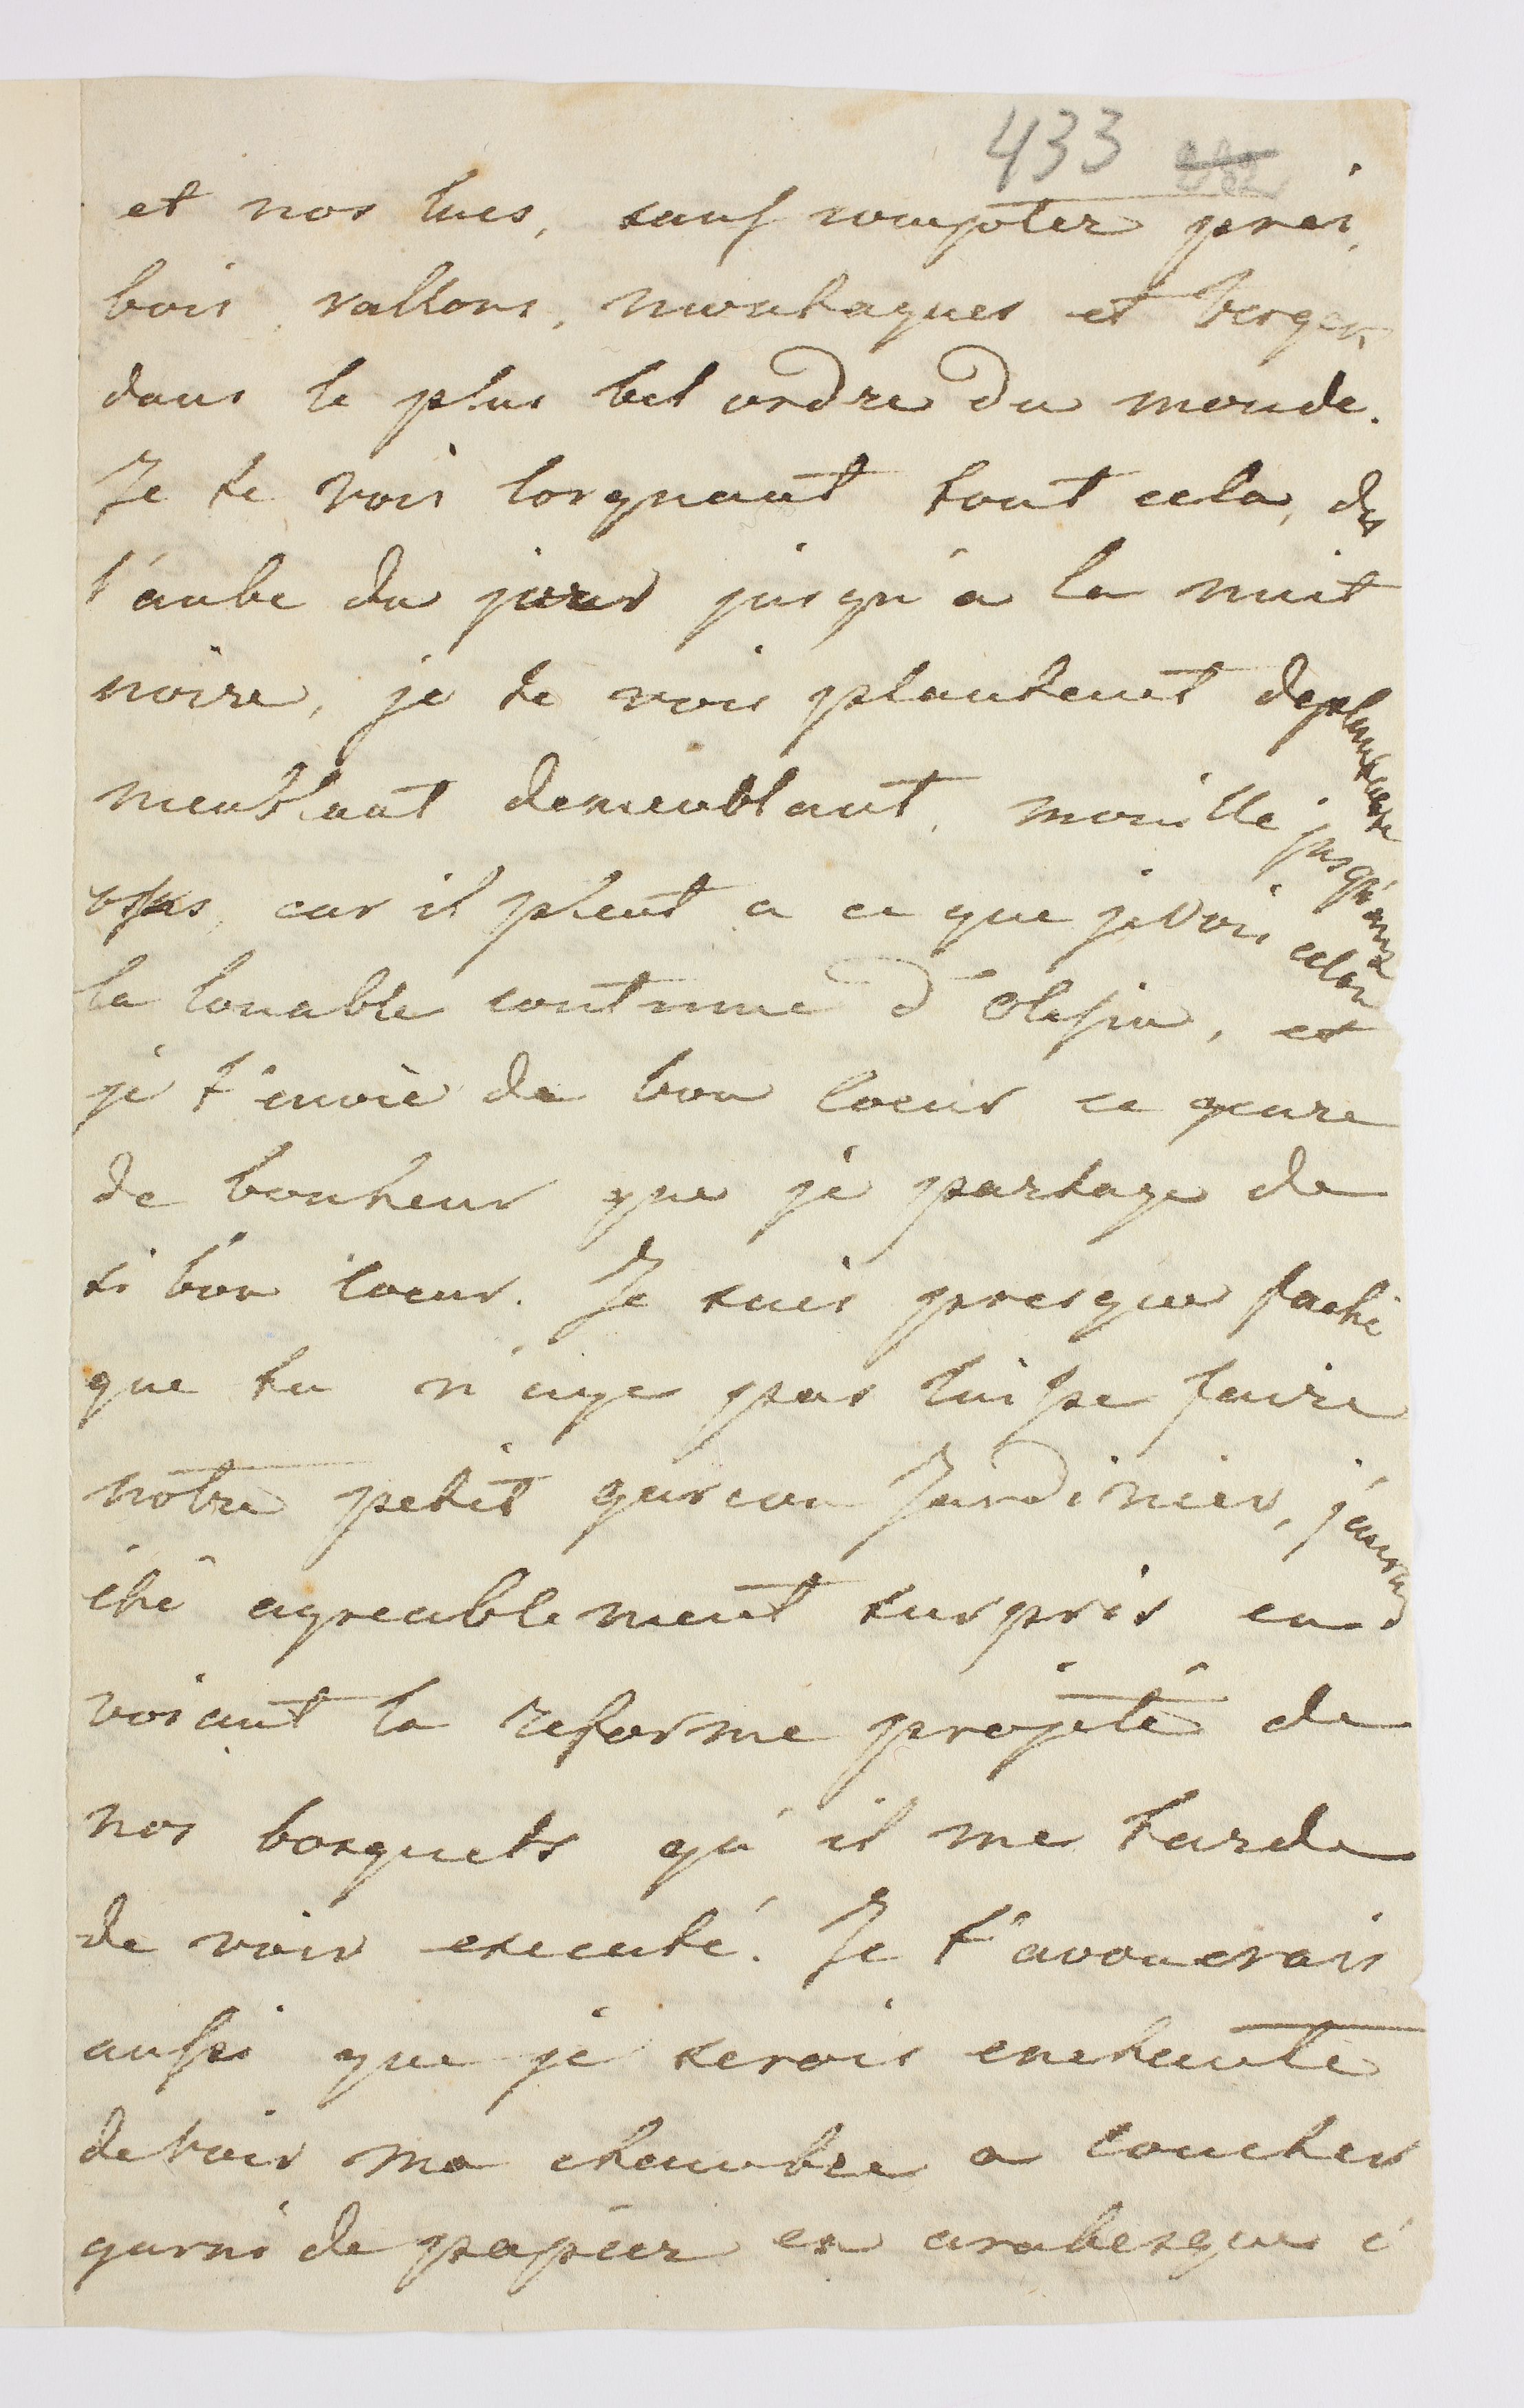 433
et nos lacs, sauf compter près,
bois, vallons, montagnes et berger
dans le plus bel ordre du monde.
Je te vois lorgnant tout cela, des
l'aube du jour jusqu'a la nuit
noire, je te vois plantent deplantent
meublant demeublant, mouille jusqu'aux
os, car il pleut a ce que je vois selon
la louable coutume d'Olesin, et
je t'envie de bon coeur ce genre
de bonheur que je partage de
si bon coeur. Je suis presque faché
que tu n'aye pas laisse faire
notre petit garcon Jardinier, j'aurais
été agreablement surpris en
voiant la reforme projeté de
nos bosquets qu'il me tarde
de voir executé. Je t'avouerais
aussi que je serois enchanté
de voir ma chambre a coucher
garni de papier en arabesque é